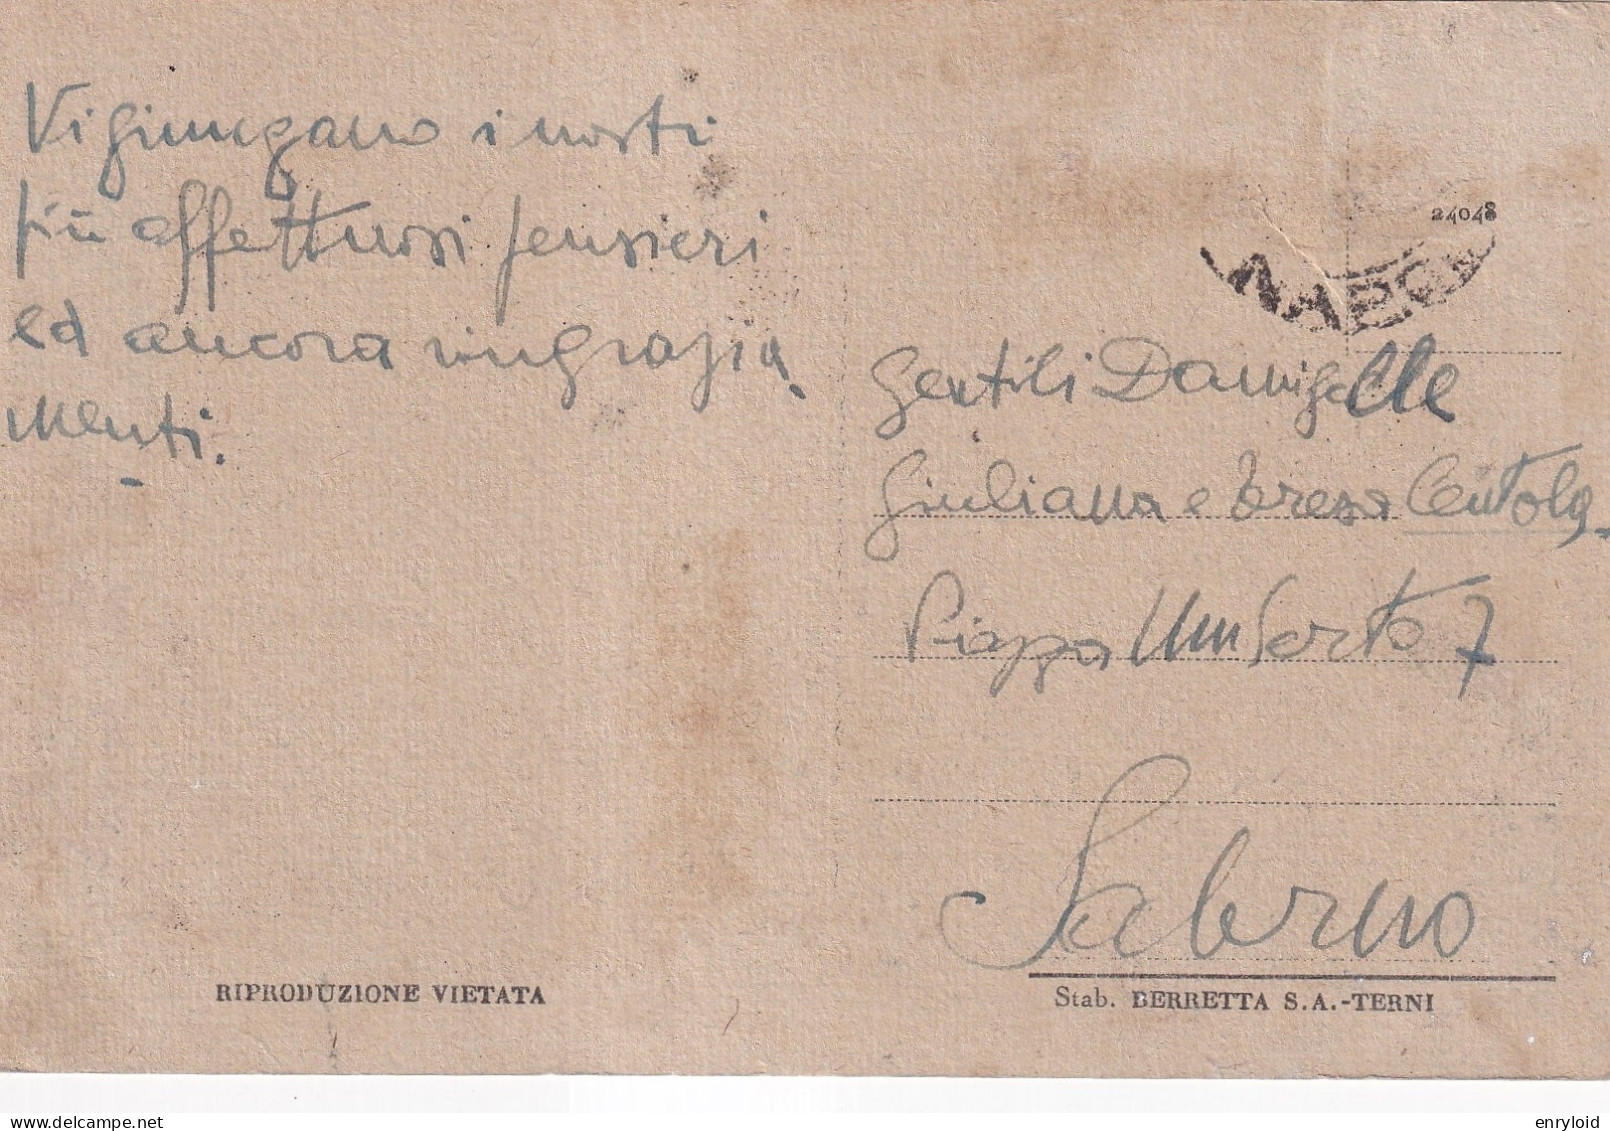 Vi giungano i nostri
più affettuosi pensieri
ed ancora ringrazia-
menti.
RIPRODUZIONE VIETATA
24048
NAPOLI
Gentili Damigelle
Giuliana e Teresa Centola
Piazza Umberto 7
Salerno
Stab. BERRETTA S.A.-TERNI
enryloid
delcampe.net